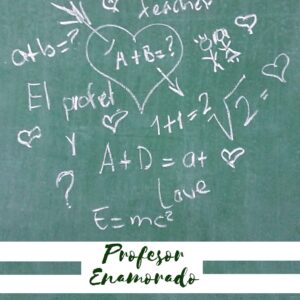 teacher
a+b=?
A+B=?
El profe
1+1=2
√2=
y
A+D=a+
?
Love
E=mc²
Profesor
Enamorado